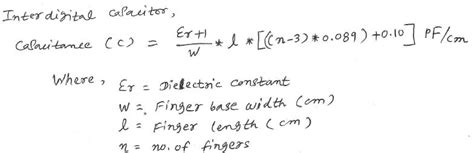 Interdigital Capacitor,
Capacitance (C) = Er+1/W * l * [((n-3)*0.089)+0.10] PF/cm
Where, Er = Dielectric constant
W = Finger base width (cm)
l = Finger length (cm)
n = no. of fingers